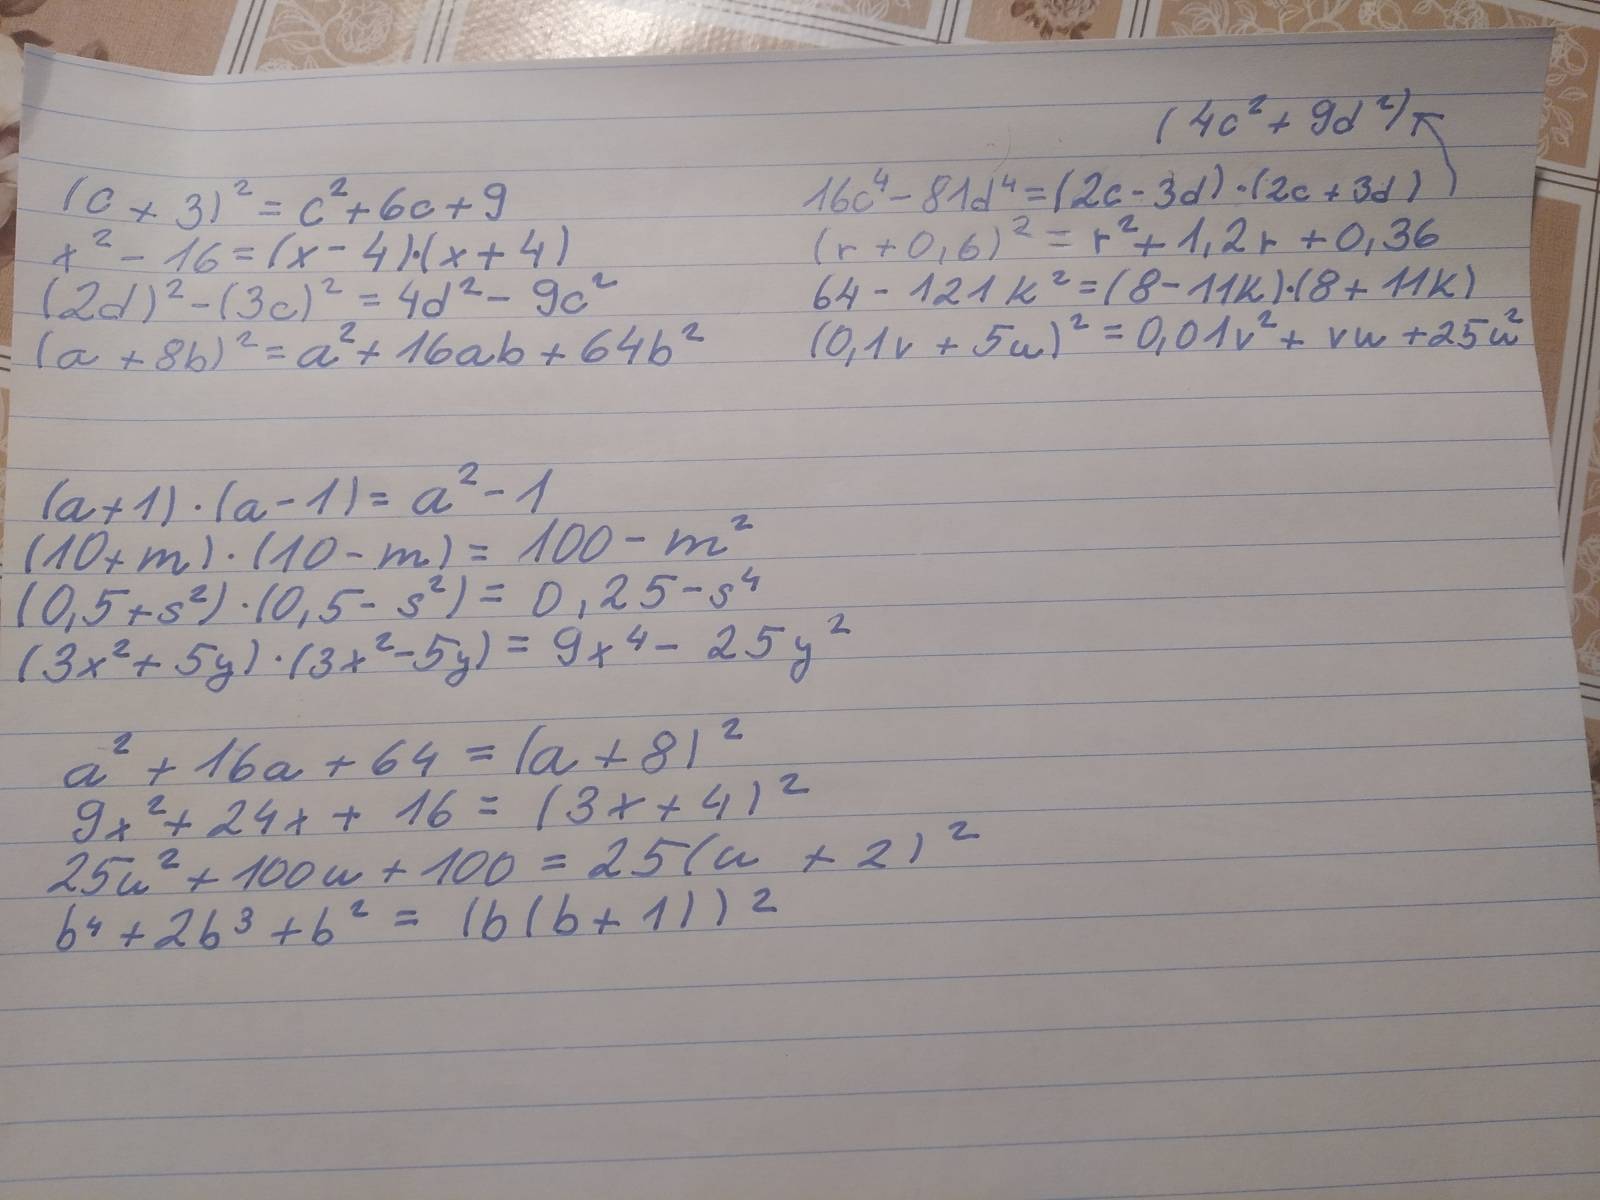 (c + 3)² = c² + 6c + 9
x² - 16 = (x - 4)·(x + 4)
(2d)² - (3c)² = 4d² - 9c²
(a + 8b)² = a² + 16ab + 64b²
(4c² + 9d²)
16c⁴ - 81d⁴ = (2c - 3d)·(2c + 3d)
(r + 0,6)² = r² + 1,2r + 0,36
64 - 121k² = (8 - 11k)·(8 + 11k)
(0,1v + 5u)² = 0,01v² + vu + 25u²
(a + 1)·(a - 1) = a² - 1
(10 + m)·(10 - m) = 100 - m²
(0,5 + s²)·(0,5 - s²) = 0,25 - s⁴
(3x² + 5y)·(3x² - 5y) = 9x⁴ - 25y²
a² + 16a + 64 = (a + 8)²
9x² + 24x + 16 = (3x + 4)²
25u² + 100u + 100 = 25(u + 2)²
b⁴ + 2b³ + b² = (b(b + 1))²